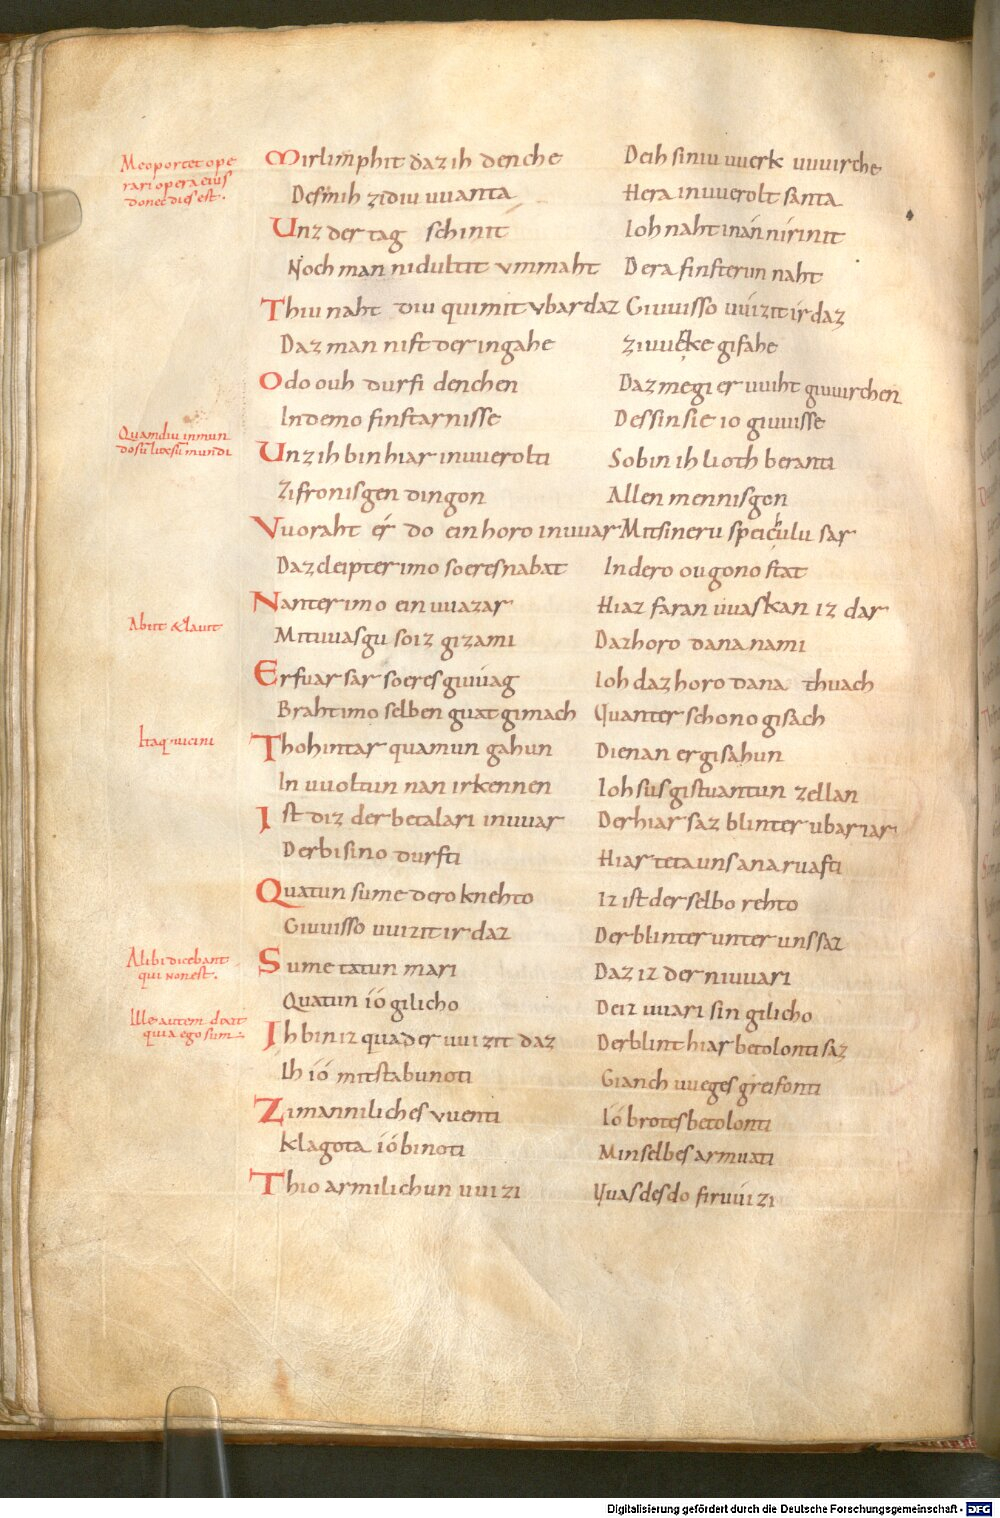 Me oportet ope
rari opera eius
donec dies est.
Mir limphit daz ih denche Deih siniu uuerk uuuirche
Desmih zidiu uuanta Hera inuuerolt santa
Unz der tag schinit Ioh naht inán nírinit
Noch man nidultit ummaht Dera finsterun naht
Thiu naht diu quimit ubar daz Giuuisso uuizit ír daz
Daz man nist der ingahe Ziuuerke gifahe
Odo ouh durfi denchen Daz megi er uuiht giuuirchen
Indemo finstarnisse Dessinsie io giuuisse
Quamdiu in mun
do sū lux sū mundi
Unz ih bin hiar inuuerolti So bin ih lioth beranti
Zifronisgen dingon Allen mennisgon
Vuoraht ér do ein horo inuuar Mit sineru speichulu sar
Daz cleipter imo so er es nabat In dero ougono stat
Nanter imo ein uuazar Hiaz faran uuaskan iz dar
Abiit & lauit
Mituuasgu so iz gizami Daz horo dana nami
Er fuar sar so er es giuuag Ioh daz horo dana thuach
Braht imo selben guat gimach Quanter schono gisach
Itaq; uicini
Tho hintar quamun gahun Die nan er gisahun
In uuoltun nan irkennen Ioh sus gistuantun zellan
Ist diz der betalari inuuar Der hiar saz blinter ubar iar
Der bi sino durfti Hiar teta uns ana ruafti
Quatun sume dero knehto Iz ist der selbo rehto
Giuuisso uuizit ir daz Der blinter unter uns saz
Alii dicebant
qui non est.
Sume tatun mari Daz iz der niuuari
Quatun ió gilicho Deiz uuari sin gilicho
Ille autem dixit
quia ego sum
Ih bin iz quad er uuizit daz Der blint hiar betolonti saz
Ih ió mit stabu noti Gianch uueges greifonti
Zi manniliches uuenti Ió brotes betolonti
Klagota ió bi noti Min selbes armuati
Thio armilichun uuizi Quas des do firuuizi
Digitalisierung gefördert durch die Deutsche Forschungsgemeinschaft - DFG